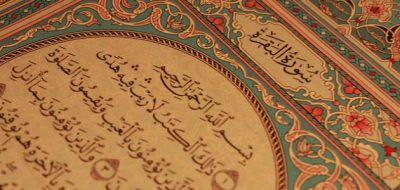 سُورَةُ الْبَقَرَةِ
بِسْمِ اللَّهِ الرَّحْمَٰنِ الرَّحِيمِ
ذَٰلِكَ الْكِتَابُ لَا رَيْبَ فِيهِ هُدًى
يُؤْمِنُونَ بِالْغَيْبِ وَيُقِيمُونَ الصَّلَاةَ
وَالَّذِينَ يُؤْمِنُونَ بِمَا أُنْزِلَ
وَبِالْآخِرَةِ هُمْ يُوقِنُونَ